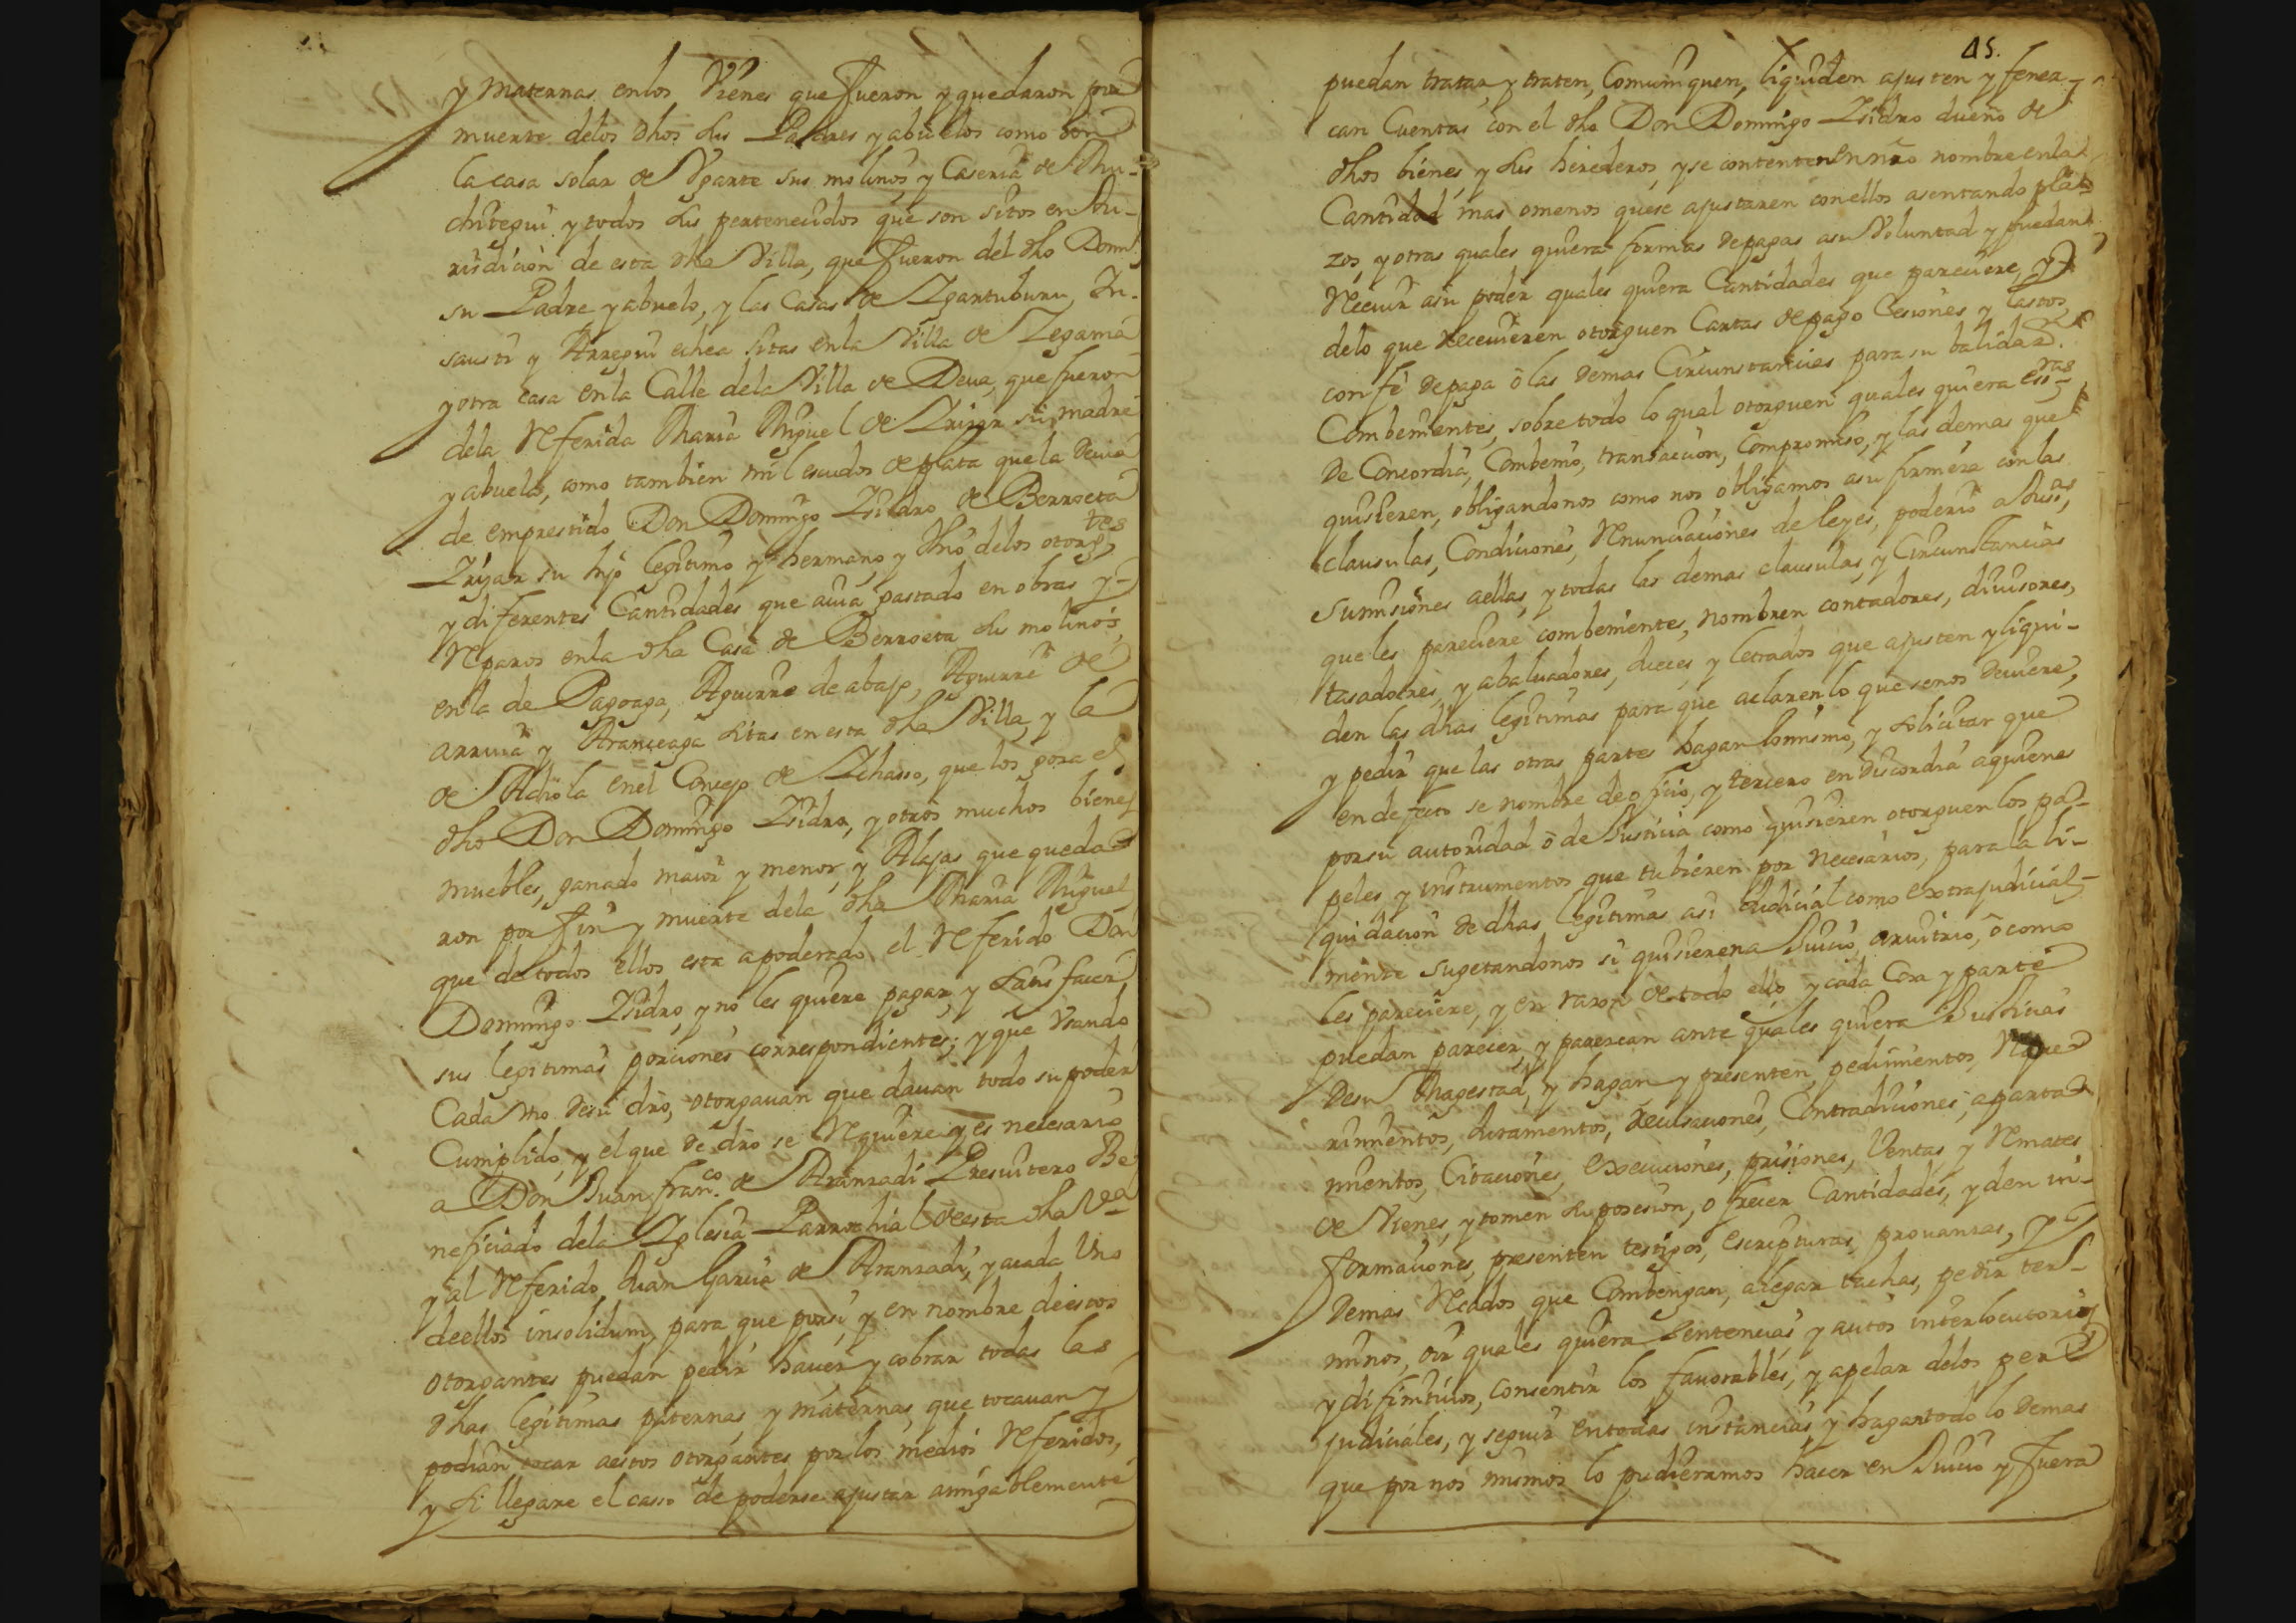 y maternas en los Vienes que fueron y quedaron por
muerte delos dhos sus Padres y abuelos como son
la casa solar de Vgarte sus molinos y Caseria de
chitegui y todos sus pertenecidos que son sitos en Ju-
risdicion de esta dha Villa, que fueron del dho Domi.
su Padre y abuelo, y las Casas de Ygartuburu, In-
sausti y Arregui echea sitas en la Villa de Zegama
y otra casa en la Calle dela Villa de Deua, que fueron
dela Referida Maria Miguel de Yrizar su madre
y abuela, como tambien mil escudos de plata que la deuia
de emprestido Don Domingo Ysidro de Berroeta
Yrizar su hijo legitimo y hermano, y thio delos otorgtes
y diferentes Cantidades que auia gastado en obras y
Reparos en la dha Casa de Berroeta sus molinos,
en la de Pagoaga, Aguirre de abajo, Aguirre de
arriua y Aranzeaga sitas en esta dha Villa, y la
de Achiola en el Concejo de Ychasso, que los goza el
dho Don Domingo Ysidro, y otros muchos bienes
muebles, ganado maior y menor, y Alajas que queda-
ron por fin y muerte dela dha Maria Miguel
que de todos ellos esta apoderado el Referido Don
Domingo Ysidro, y no les quiere pagar, y satisfacer
sus legitimas porciones correspondientes; y que Vsando
Cada Vno de su dro, otorgauan que dauan todo su poder
Cumplido, y el que de dro se Requiere y es necesario
a Don Juan Franco. de Aranzadi Presuitero Be-
neficiado dela Yglesia Parrochial de esta dha Va
y al Referido Juan Garcia de Aranzadi, y acada Vno
de ellos insolidum, para que por si, y en nombre de estos
otorgantes puedan pedir hauer y cobrar todas las
dhas legitimas paternas, y maternas, que tocauan y
podian tocar aestos otorgantes por los medios Referidos,
y si llegare el casso de poderse ajustar amigablemente
45.
puedan tratar, y traten, Comuniquen, liquiden ajusten y fenez-
can Cuentas con el dho Don Domingo Ysidro dueño de
dhos bienes, y sus herederos, y se contenten en nro nombre en la
Cantidad mas omenos quese ajustaren con ellos asentando pla-
zos, y otras quales quiera formas de pagas asu Voluntad y puedan
Receuir asu poder quales quiera Cantidades que pareciere, y
delo que Receuieren otorguen Cartas de pago Cesiones y lastos
con fe de paga o las demas Circunstancias para su balidad.
Combenientes, sobre todo lo qual otorguen quales quiera essras
de Concordia, Combenio, transacion, Compromiso, y las demas que
quisieren, obligandonos como nos obligamos asu firmeza con las
clausulas, Condiciones, Renunciaciones de leyes, poderio a Justas,
Sumisiones aellas, y todas las demas clausulas, y Circunstancias
que les pareciere combenientes, nombren contadores, diuisores,
tasadores, y abaluadores, Jueces, y letrados que ajusten y liqui-
den las dhas legitimas para que aclaren lo que senos deuiere,
y pedir que las otras partes hagan lo mismo, y solicitar que
en defecto se nombre de oficio, y tercero en discordia aquienes
por su autoridad o de Justicia como quisieren otorguen los pa-
peles y instrumentos que tubieren por Necesarios, para la li-
quidacion de dhas legitimas asi Judicial como extrajudicial-
mente Sugetandonos si quisieren a Juicio, aruitrio, o como
les pareciere, y en razon de todo ello, y cada Cosa y parte
puedan parecer, y parezcan ante quales quiera Justicias
de su Magestad, y hagan y presenten pedimientos, Reque-
rimientos, Juramentos, Recusaciones, Contradiciones, aparta-
mientos, Citaciones, Execuciones, prisiones, Ventas, y Remates
de Vienes, y tomen su posesion, ofrecer Cantidades, y den in-
formaciones, presenten testigos, escripturas, prouanzas, y
demas Recados que Combengan, alegar tachas, pedir ter-
minos, oir quales quiera Sentencias y autos interlocutorios
y difinitiuos, consentir los fauorables, y apelar delos per-
judiciales, y seguir en todas instancias, y hagan todo lo demas
que por nos mismos lo pudieramos hacer en Juicio y fuera